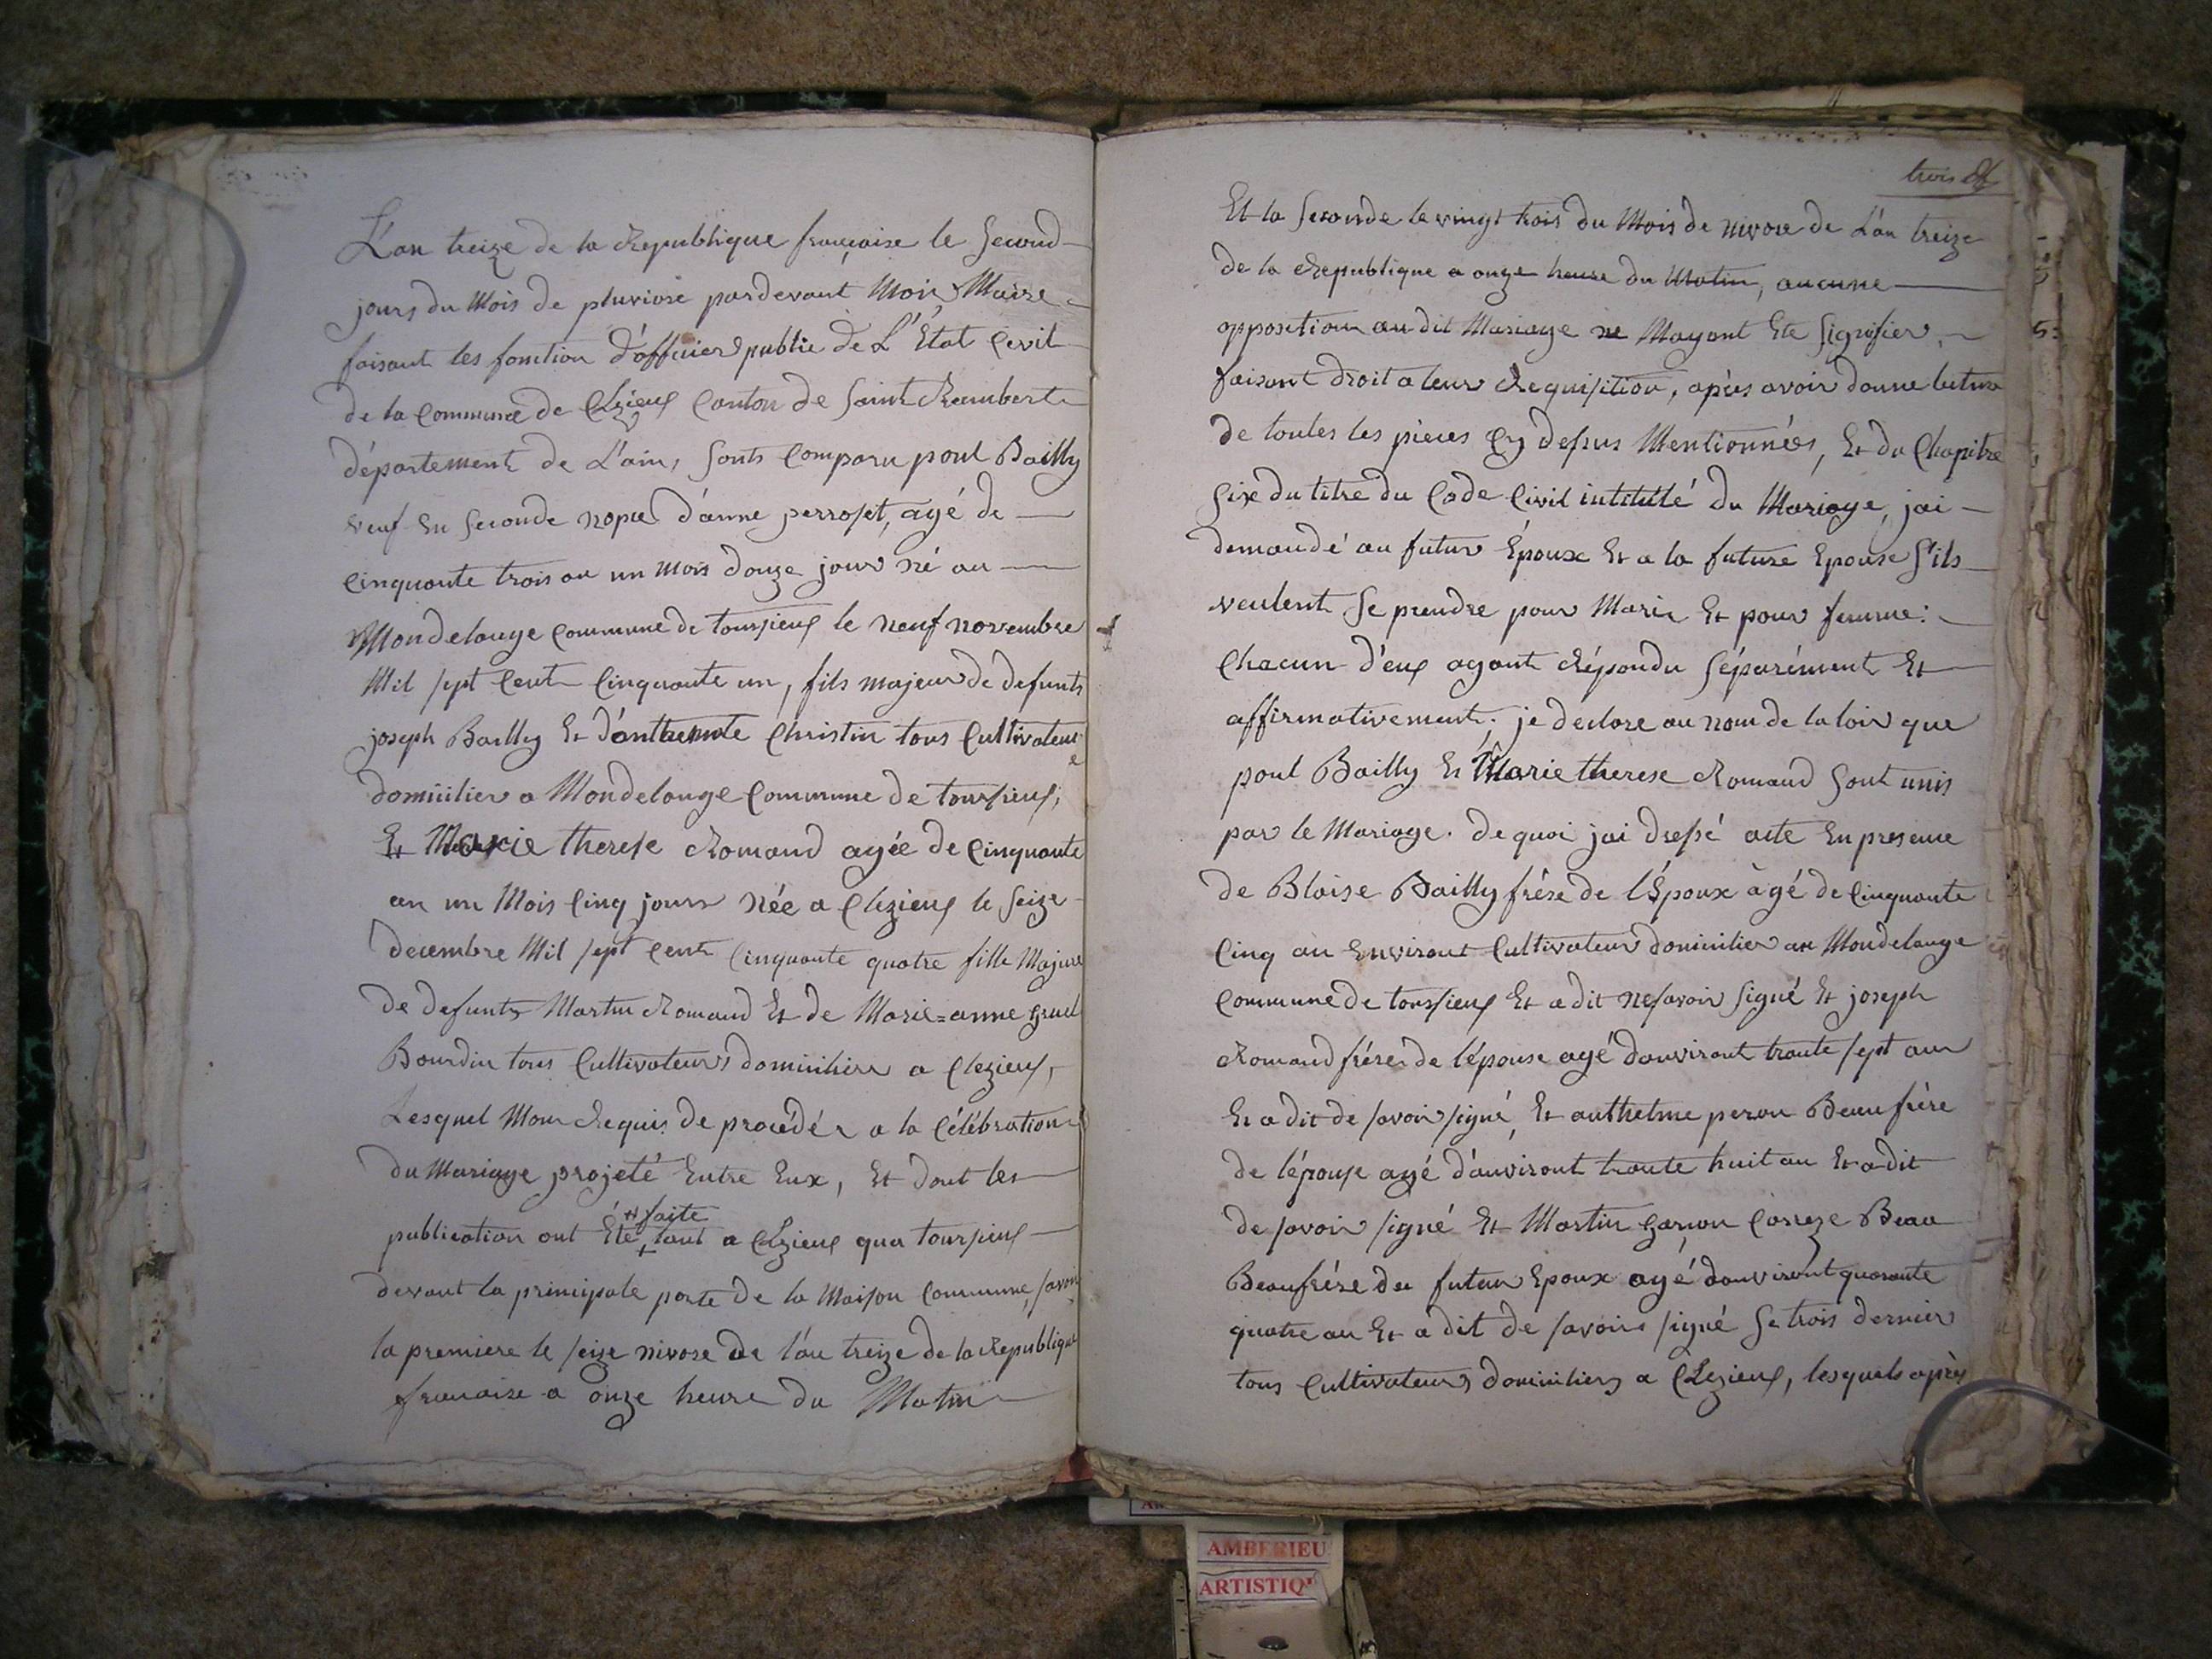 L'an treize de la Republique française le Second
jours du Mois de pluviose pardevant Moi Maire
faisant les fonction d'officier public de L'État Cevil
de la Commune de Clezieux Canton de Saint Rambert
département de L'ain, sonts Comparu poul Bailly
veuf En Seconde nopce d'anne perroset, agé de
Cinquante trois an un mois douze jour né au
Mondelouge Commune de toursieux le neuf novembre
Mil sept Cent Cinquante un, fils majeur de defunts
joseph Bailly Et d'anthemte Christin tous Cultivateur
domicilier a Mondelouge Commune de toursieux,
Et Marie therese Romand agée de Cinquante
an un Mois Cinq jours Née a Clezieux le Seize
decembre Mil sept Cent Cinquante quatre fille Majeure
de defunts Martin Romand Et de Marie=anne gruel
Bourdin tous Cultivateurs domicilier a Clezieux,
Lesquel Mon Requis de procédér a la Célébration
du Mariage projeté Entre Eux, Et dont les
# faite
publication ont Été + tant a Clezieux qua toursieux
devant la principale porte de la Maison Commune, savoir
la premiere le seize nivose de l'an treize de la Republique
francaise a onze heure du Matin
trois
Et la Seconde le vingt trois du Mois de nivose de L'an treize
de la Republique a onze heure du Matin, aucune
opposition au dit Mariage ne Mayant Ete Signifier,
faisant droit a leur Requisition, après avoir donne lecture
de toutes les pieces Cy desus Mentionnées, Et du Chapitre
Six du titre du Code Civil intitulé du Mariage, jai
demandé au futur Époux Et a la future Epouse S'ils
veulent Se prendre pour Marie Et pour femme:
Chacun d'eux ayant Répondu Séparément Et
affirmativement; je declare au nom de la loi que
poul Bailly Et Marie therese Romand Sont unis
par le Mariage. de quoi jai dressé acte En presence
de Blaise Bailly frére de l'Époux àgé de Cinquante
Cinq an Environt Cultivateur domicilier au Mondelouge
Commune de toursieux Et a dit ne savoir Signé Et joseph
Romand frére de l'épouse agé d'anviront trante sept an
Et a dit de savoir signé, Et anthelme peron Beaufrére
de l'épouse agé d'anviront trante huit an Et a dit
de savoir signé Et Martin Beau
Beaufrére du futur Epoux agé d'anviront quarante
quatre an Et a dit de savoir signé Se trois dernier
tous Cultivateurs domiciliers a Clezieux, lesquels après
AMBERIEU
ARTISTIQ